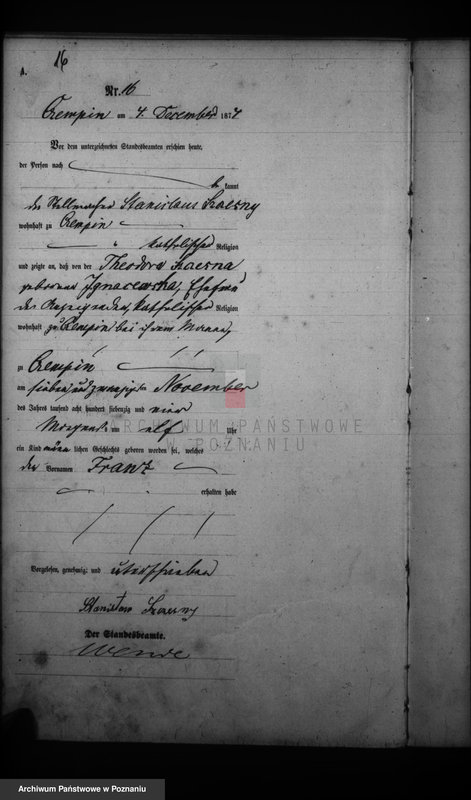 16
A.
Nr. 16
Czempin am 4. December 1874
Vor dem unterzeichneten Standesbeamten erschien heute,
der Person nach
be kannt
der Stellmacher Stanislaus
wohnhaft zu Czempin
katholischer Religion
und zeigte an, daß von der Theodora
geborenen Ignacewska, Ehefrau
des Anzeigenden, katholischer Religion
wohnhaft zu Czempin bei ihrem Manne,
zu Czempin
am sieben und zwanzigsten November
des Jahres tausend acht hundert siebenzig und vier
Morgens um elf Uhr
ein Kind männ lichen Geschlechts geboren worden sei, welches
den Vornamen Franz
erhalten habe
Vorgelesen, genehmigt und unterschrieben
Stanisław
Der Standesbeamte.
ARCHIWUM PAŃSTWOWE
W POZNANIU
Archiwum Państwowe w Poznaniu